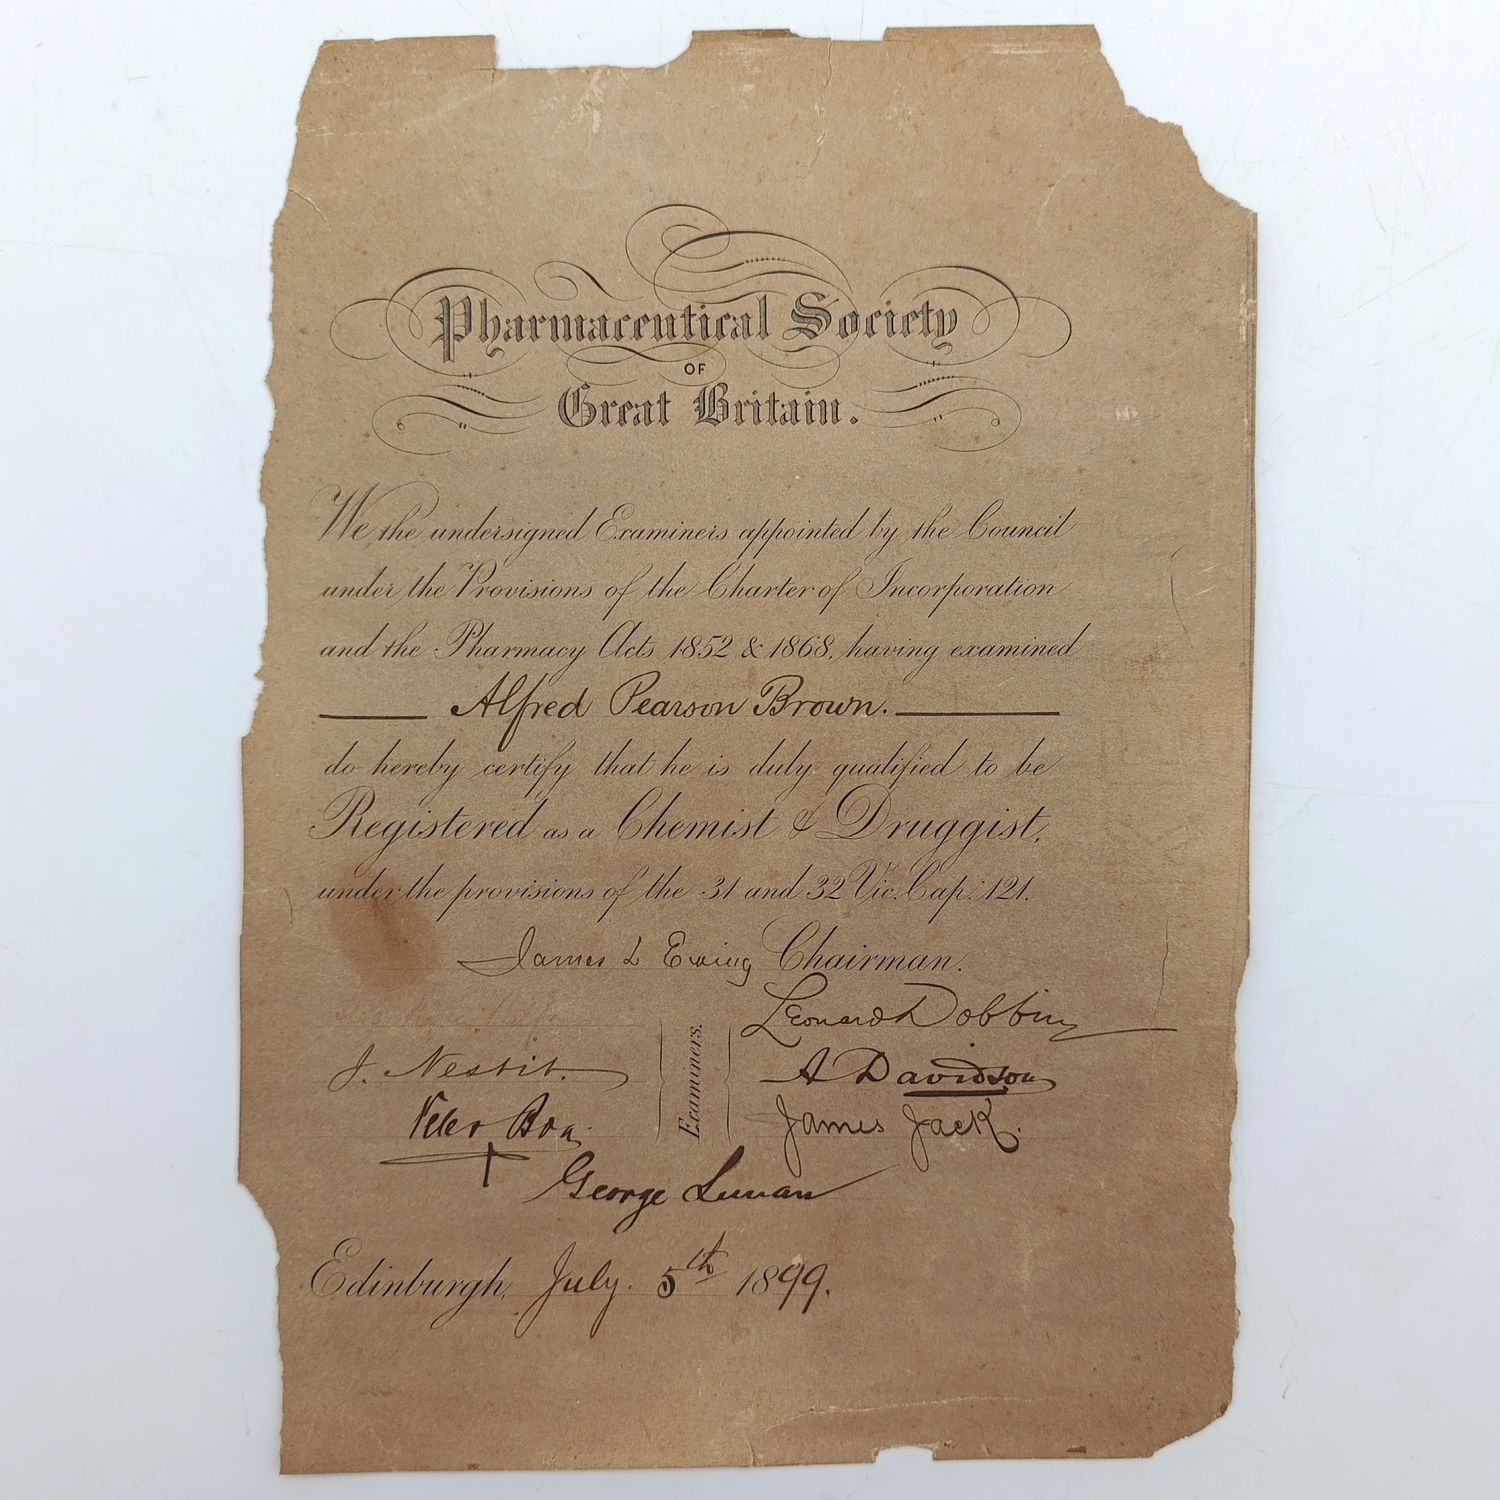 Pharmaceutical Society
OF
Great Britain.
We the undersigned Examiners appointed by the Council
under the Provisions of the Charter of Incorporation
and the Pharmacy Acts 1852 & 1868, having examined
Alfred Pearson Brown.
do hereby certify that he is duly qualified to be
Registered as a Chemist & Druggist,
under the provisions of the 31 and 32 Vic. Cap. 121.
James L Ewing Chairman.
Leonard Dobbin
J. Nesbit.
Examiners.
A Davidson
Peter Boa.
James Jack.
George Lunan
Edinburgh, July. 5th 1899.